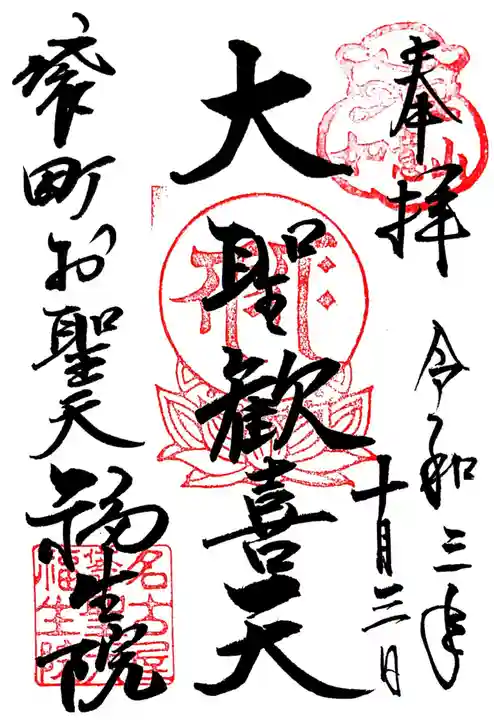 奉拝
令和三年
十月三日
大聖歓喜天
袋町お聖天
福生院
名古屋
袋町
福生院